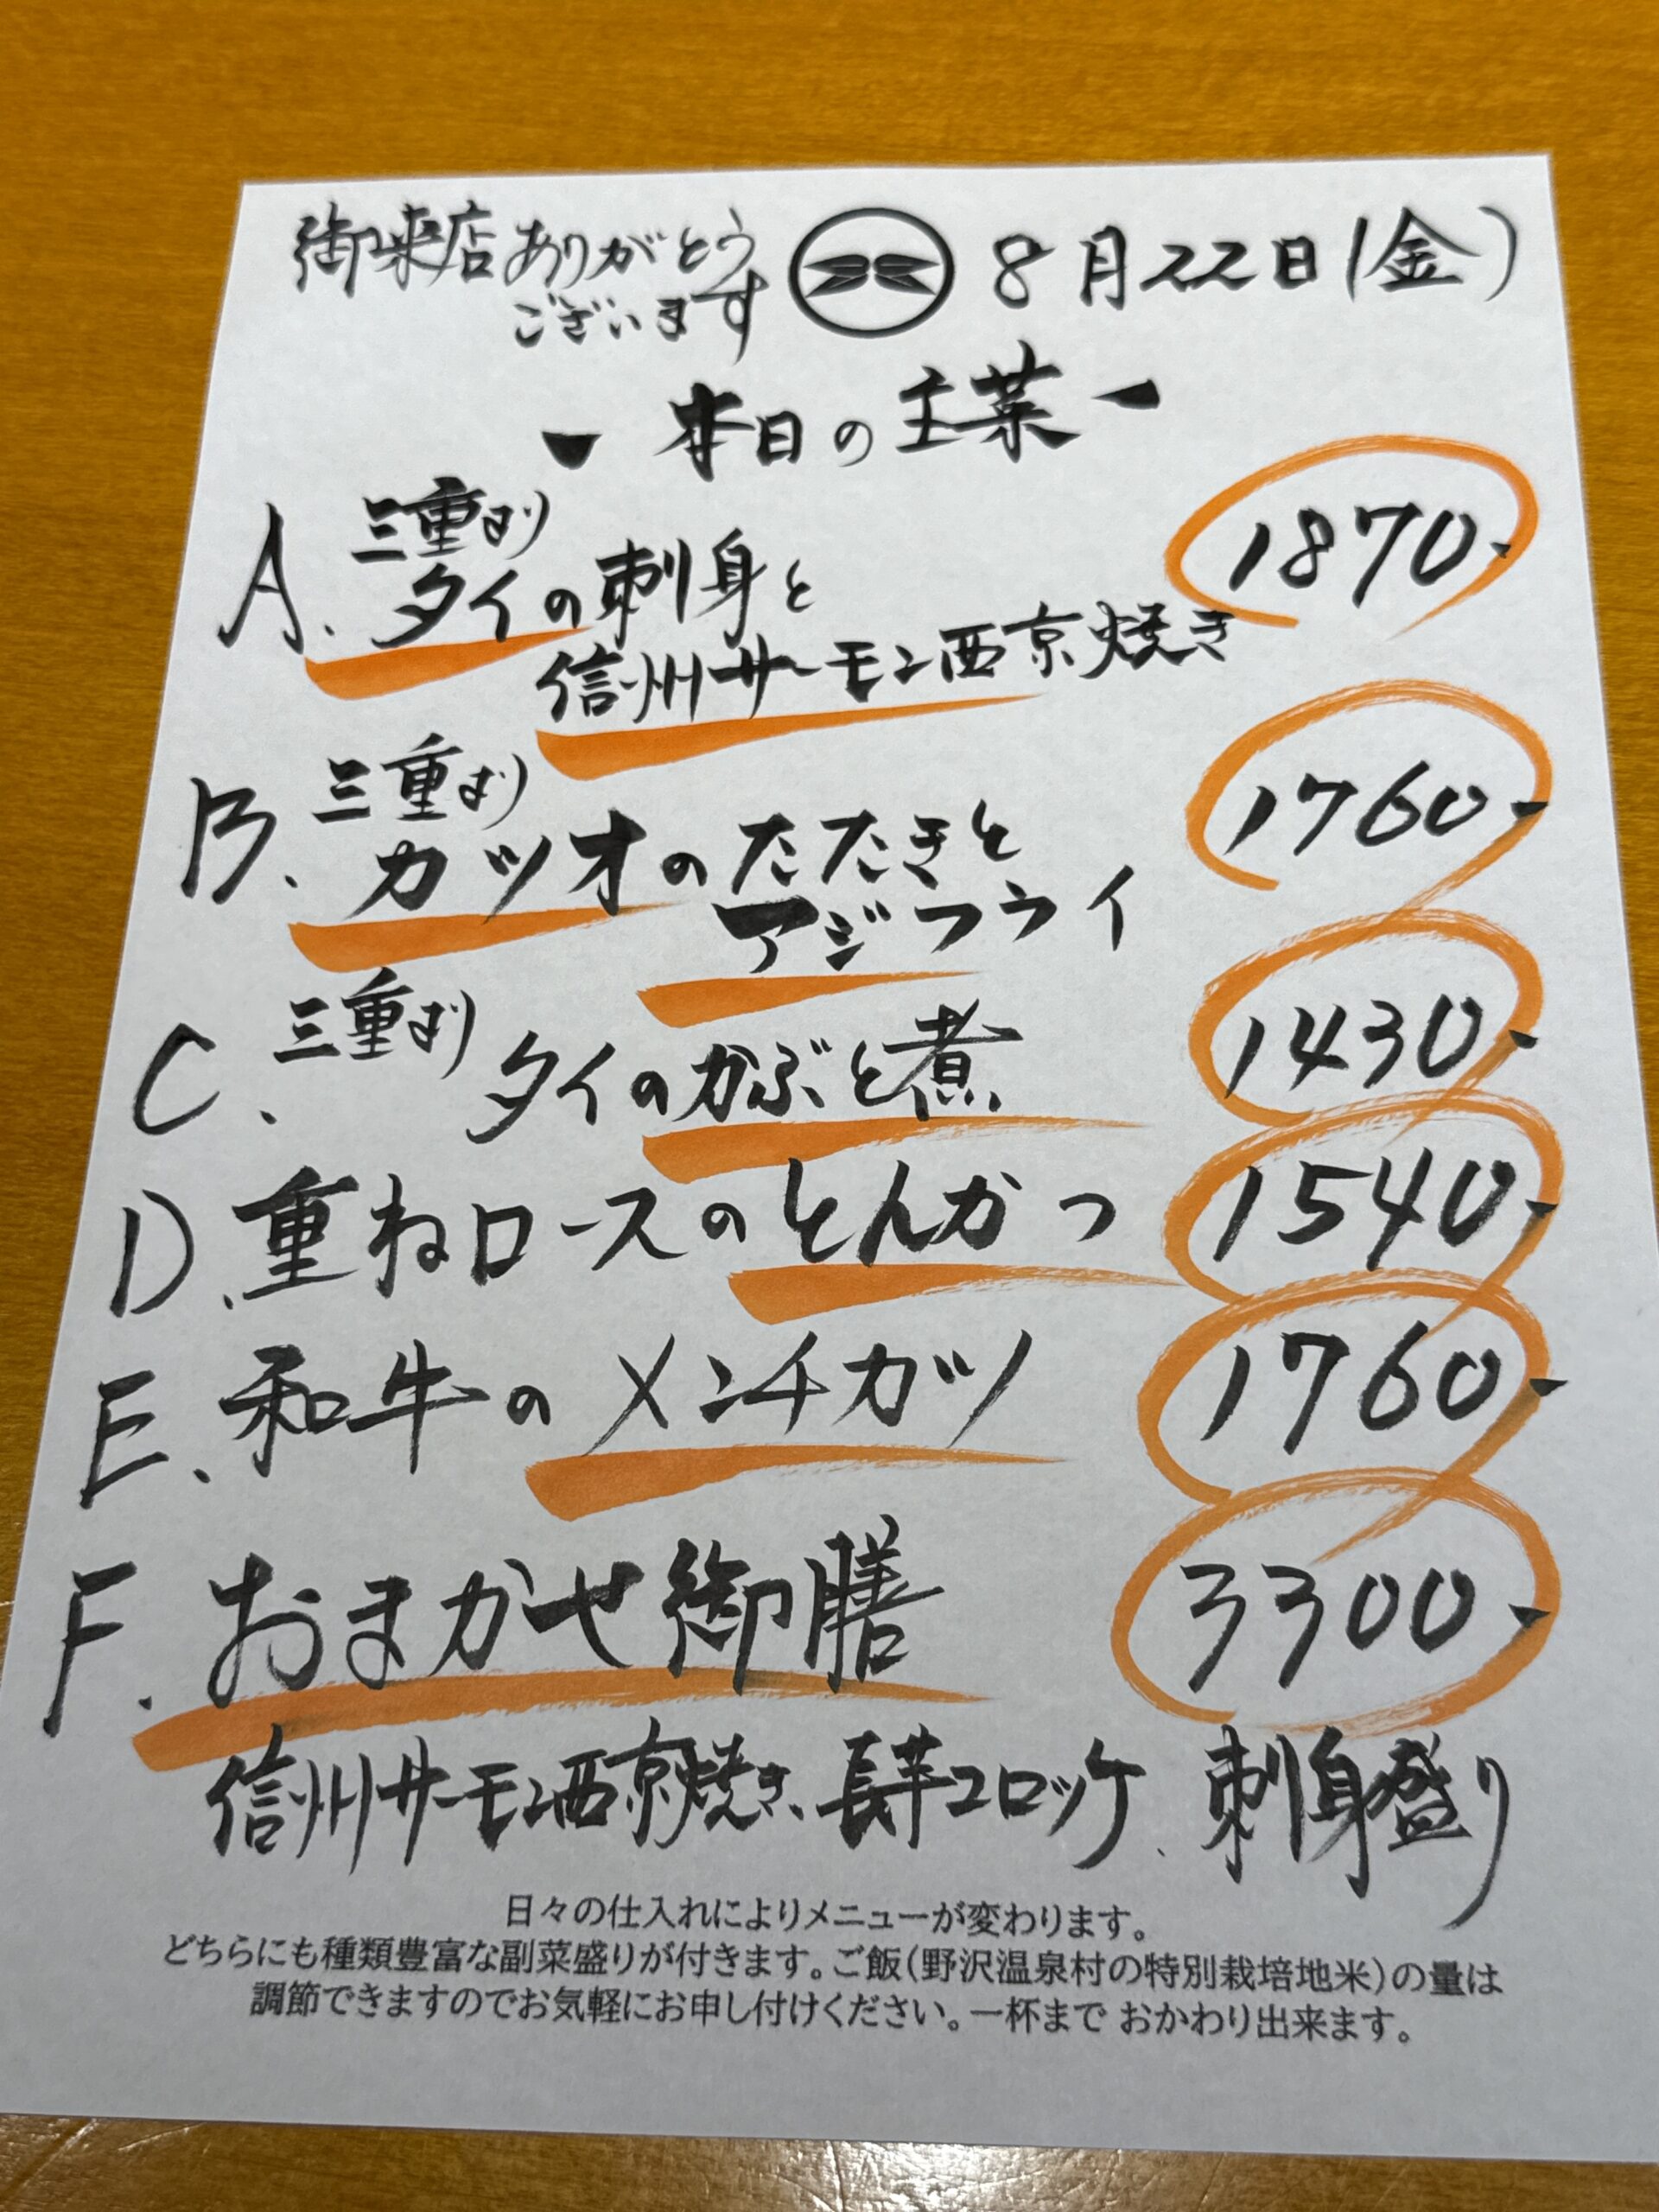 御来店ありがとう
ございます
8月22日(金)
- 本日の主菜 -
A. 三重より
タイの刺身と
信州サーモン西京焼き
1870-
B. 三重より
カツオのたたきと
アジフライ
1760-
C. 三重より
タイのかぶと煮
1430-
D. 重ねロースのとんかつ
1540-
E. 和牛のメンチカツ
1760-
F. おまかせ御膳
3300-
信州サーモン西京焼き、長芋コロッケ、刺身盛り
日々の仕入れによりメニューが変わります。
どちらにも種類豊富な副菜盛りが付きます。ご飯(野沢温泉村の特別栽培地米)の量は
調節できますのでお気軽にお申し付けください。一杯まで おかわり出来ます。